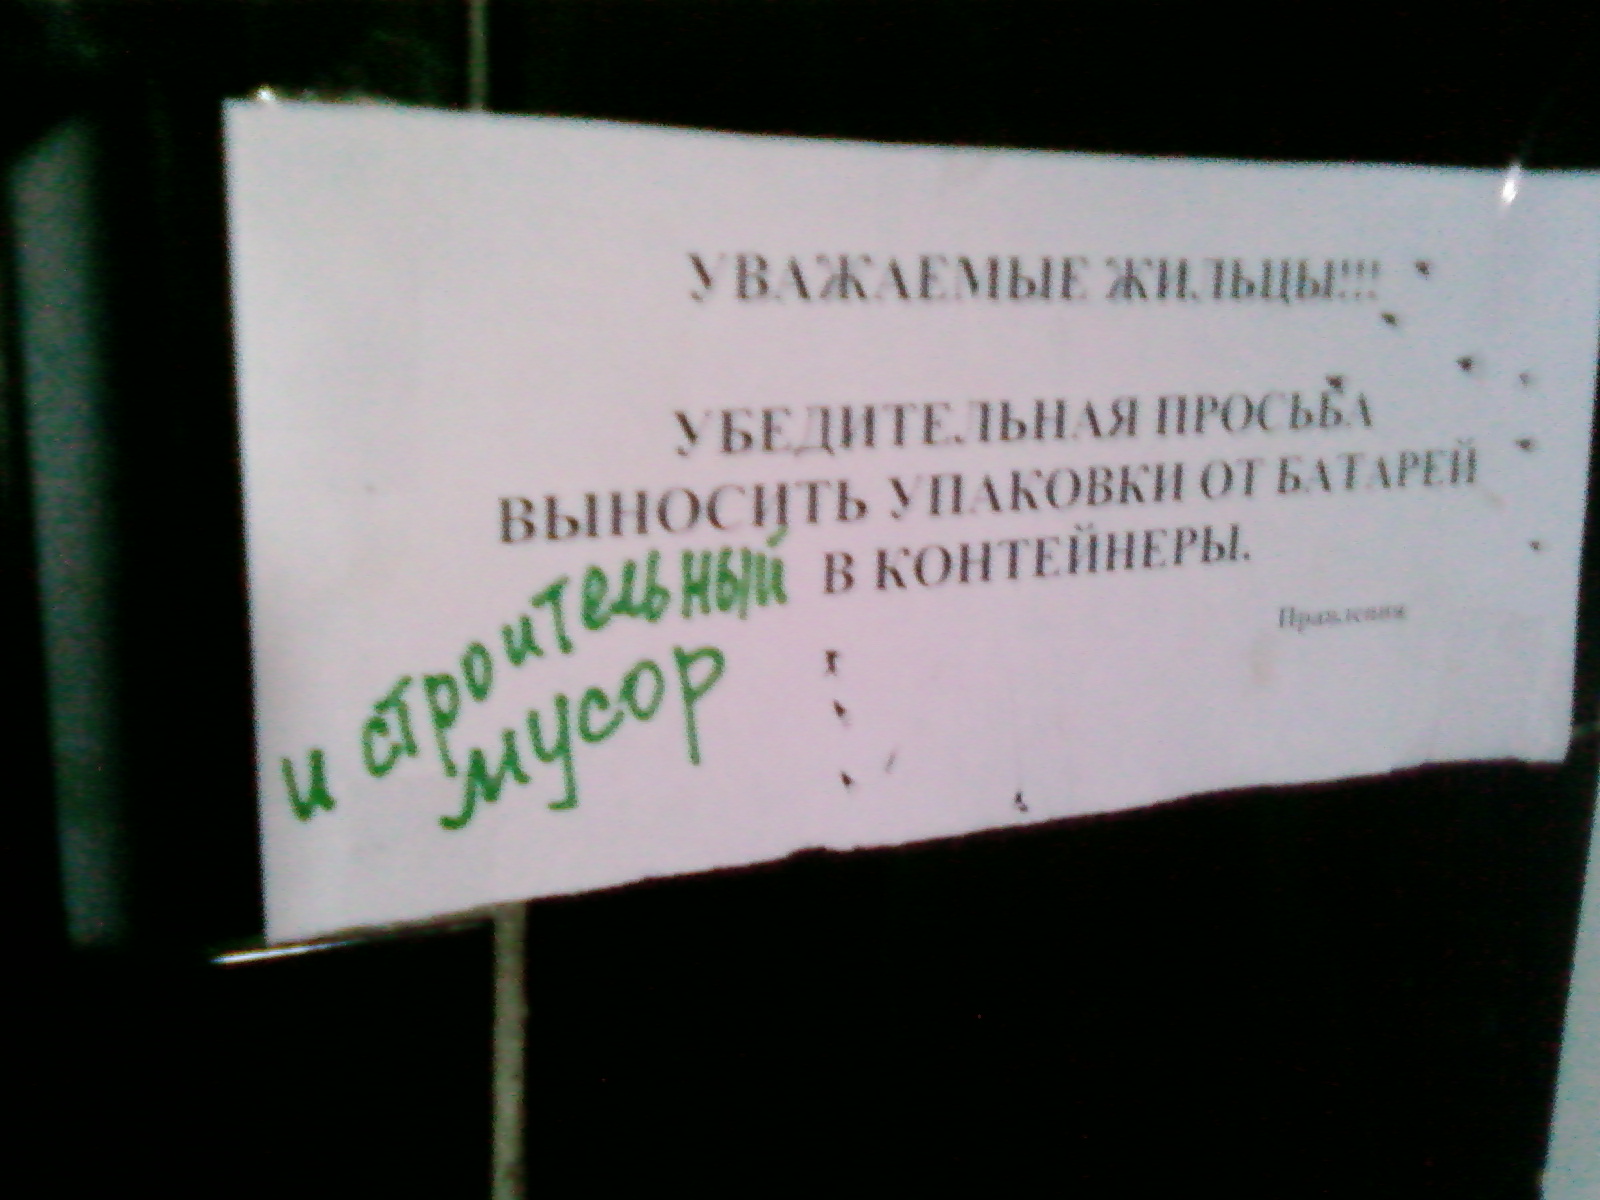 УВАЖАЕМЫЕ ЖИЛЬЦЫ!!!
УБЕДИТЕЛЬНАЯ ПРОСЬБА
ВЫНОСИТЬ УПАКОВКИ ОТ БАТАРЕЙ
В КОНТЕЙНЕРЫ.
Правления
и строительный
мусор